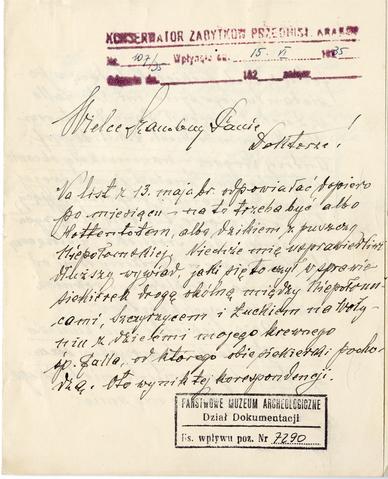 KONSERWATOR ZABYTKÓW PRZEDHIST. KRAKÓW
Nr. 107/35 Wpłynęło dn. 15. VI 1935
192
Wielce Szanowny Panie
Doktorze!
Na list z 13. maja br. odpowiadać dopiero
po miesiącu – na to trzeba być albo
Hottentotem, albo dzikiem z puszczy
Niepołomskiej. Niechże mię usprawiedliwi
dłuższy wywiad, jaki się toczył w sprawie
siekierek drogą okólną między Niepołomi-
cami, Szczyrzycem i Żuckiem na Woły-
niu z dziećmi mojego krewnego
śp. Galla, od którego obie siekierki pocho-
dzą. Oto wynik tej korespondencji.
PAŃSTWOWE MUZEUM ARCHEOLOGICZNE
Dział Dokumentacji
Ks. wpływu poz. Nr 7290